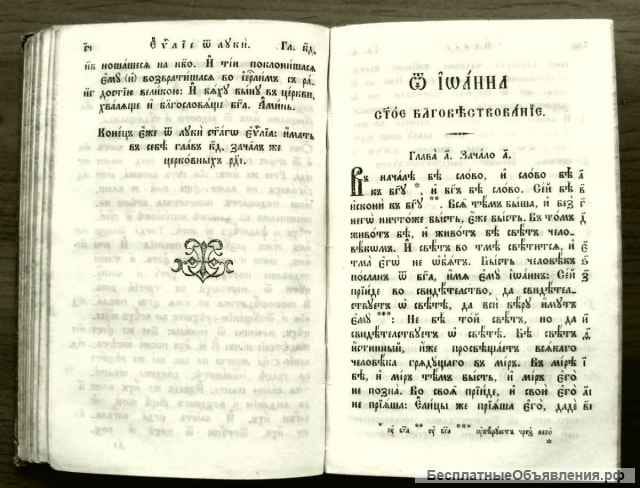 Є҆ѵⷢ҇лїе ѿ лꙋкѝ. Гл. к҃д.
носѧшесѧ на нб҃о. И҆ тїи поклонишасѧ
є҆мꙋ̀ (и҆) возвратишасѧ во і҆ерⷭ҇лимъ съ ра-
достїю великою: И҆ бѧхꙋ вынꙋ въ церкви,
хвалѧще и҆ благословѧще бг҃а. А҆минь.
Конецъ є҆же ѿ лꙋки ст҃агѡ є҆ѵⷢ҇лїа: и҆мать
въ себѣ главъ к҃д. зачалъ же
церковныхъ рд҃і.
Ѿ І҆ѡа́нна
ст҃ое благовѣствованїе.
Глава а҃. Зачало а҃.
Въ начáлѣ бѣ̀ сло́во, и҆ сло́во бѣ̀
къ бг҃ꙋ *, и҆ бг҃ъ бѣ̀ сло́во. Се́й бѣ̀
и҆сконѝ къ бг҃ꙋ **. Всѧ̑ тѣ́мъ бы́ша, и҆ без̾
негѡ̀ ничто́же бы́сть, є҆́же бы́сть. Въ то́мъ
живо́тъ бѣ̀, и҆ живо́тъ бѣ̀ свѣ́тъ чело-
вѣ́кѡмъ. И҆ свѣ́тъ во тмѣ̀ свѣ́титсѧ, и҆
тма̀ є҆гѡ̀ не ѡ҆б̾ѧ́тъ. Бы́сть человѣ́къ
по́сланъ ѿ бг҃а, и҆́мѧ є҆мꙋ̀ і҆ѡа́ннъ: Се́й
прїи́де во свидѣ́тельство, да свидѣ́тел-
ствꙋетъ ѡ҆ свѣ́тѣ, да всѝ вѣ́рꙋ и҆́мꙋтъ
є҆мꙋ̀ ***: Не бѣ̀ то́й свѣ́тъ, но да
свидѣ́тельствꙋетъ ѡ҆ свѣ́тѣ. Бѣ̀ свѣ́тъ
и҆́стинный, и҆́же просвѣща́етъ всѧ́каго
человѣ́ка грѧдꙋ́щаго въ мі́ръ. Въ мі́рѣ
бѣ̀, и҆ мі́ръ тѣ́мъ бы́сть, и҆ мі́ръ є҆гѡ̀
не позна̀. Во своѧ̑ прїи́де, и҆ своѝ є҆гѡ̀
не прїѧ́ша: Е҆ли́цы же прїѧ́ша є҆го̀, дадѐ
* оу҆ бг҃а ** оу҆ бг҃а *** чрез̾ него̀
БесплатныеОбъявления.рф